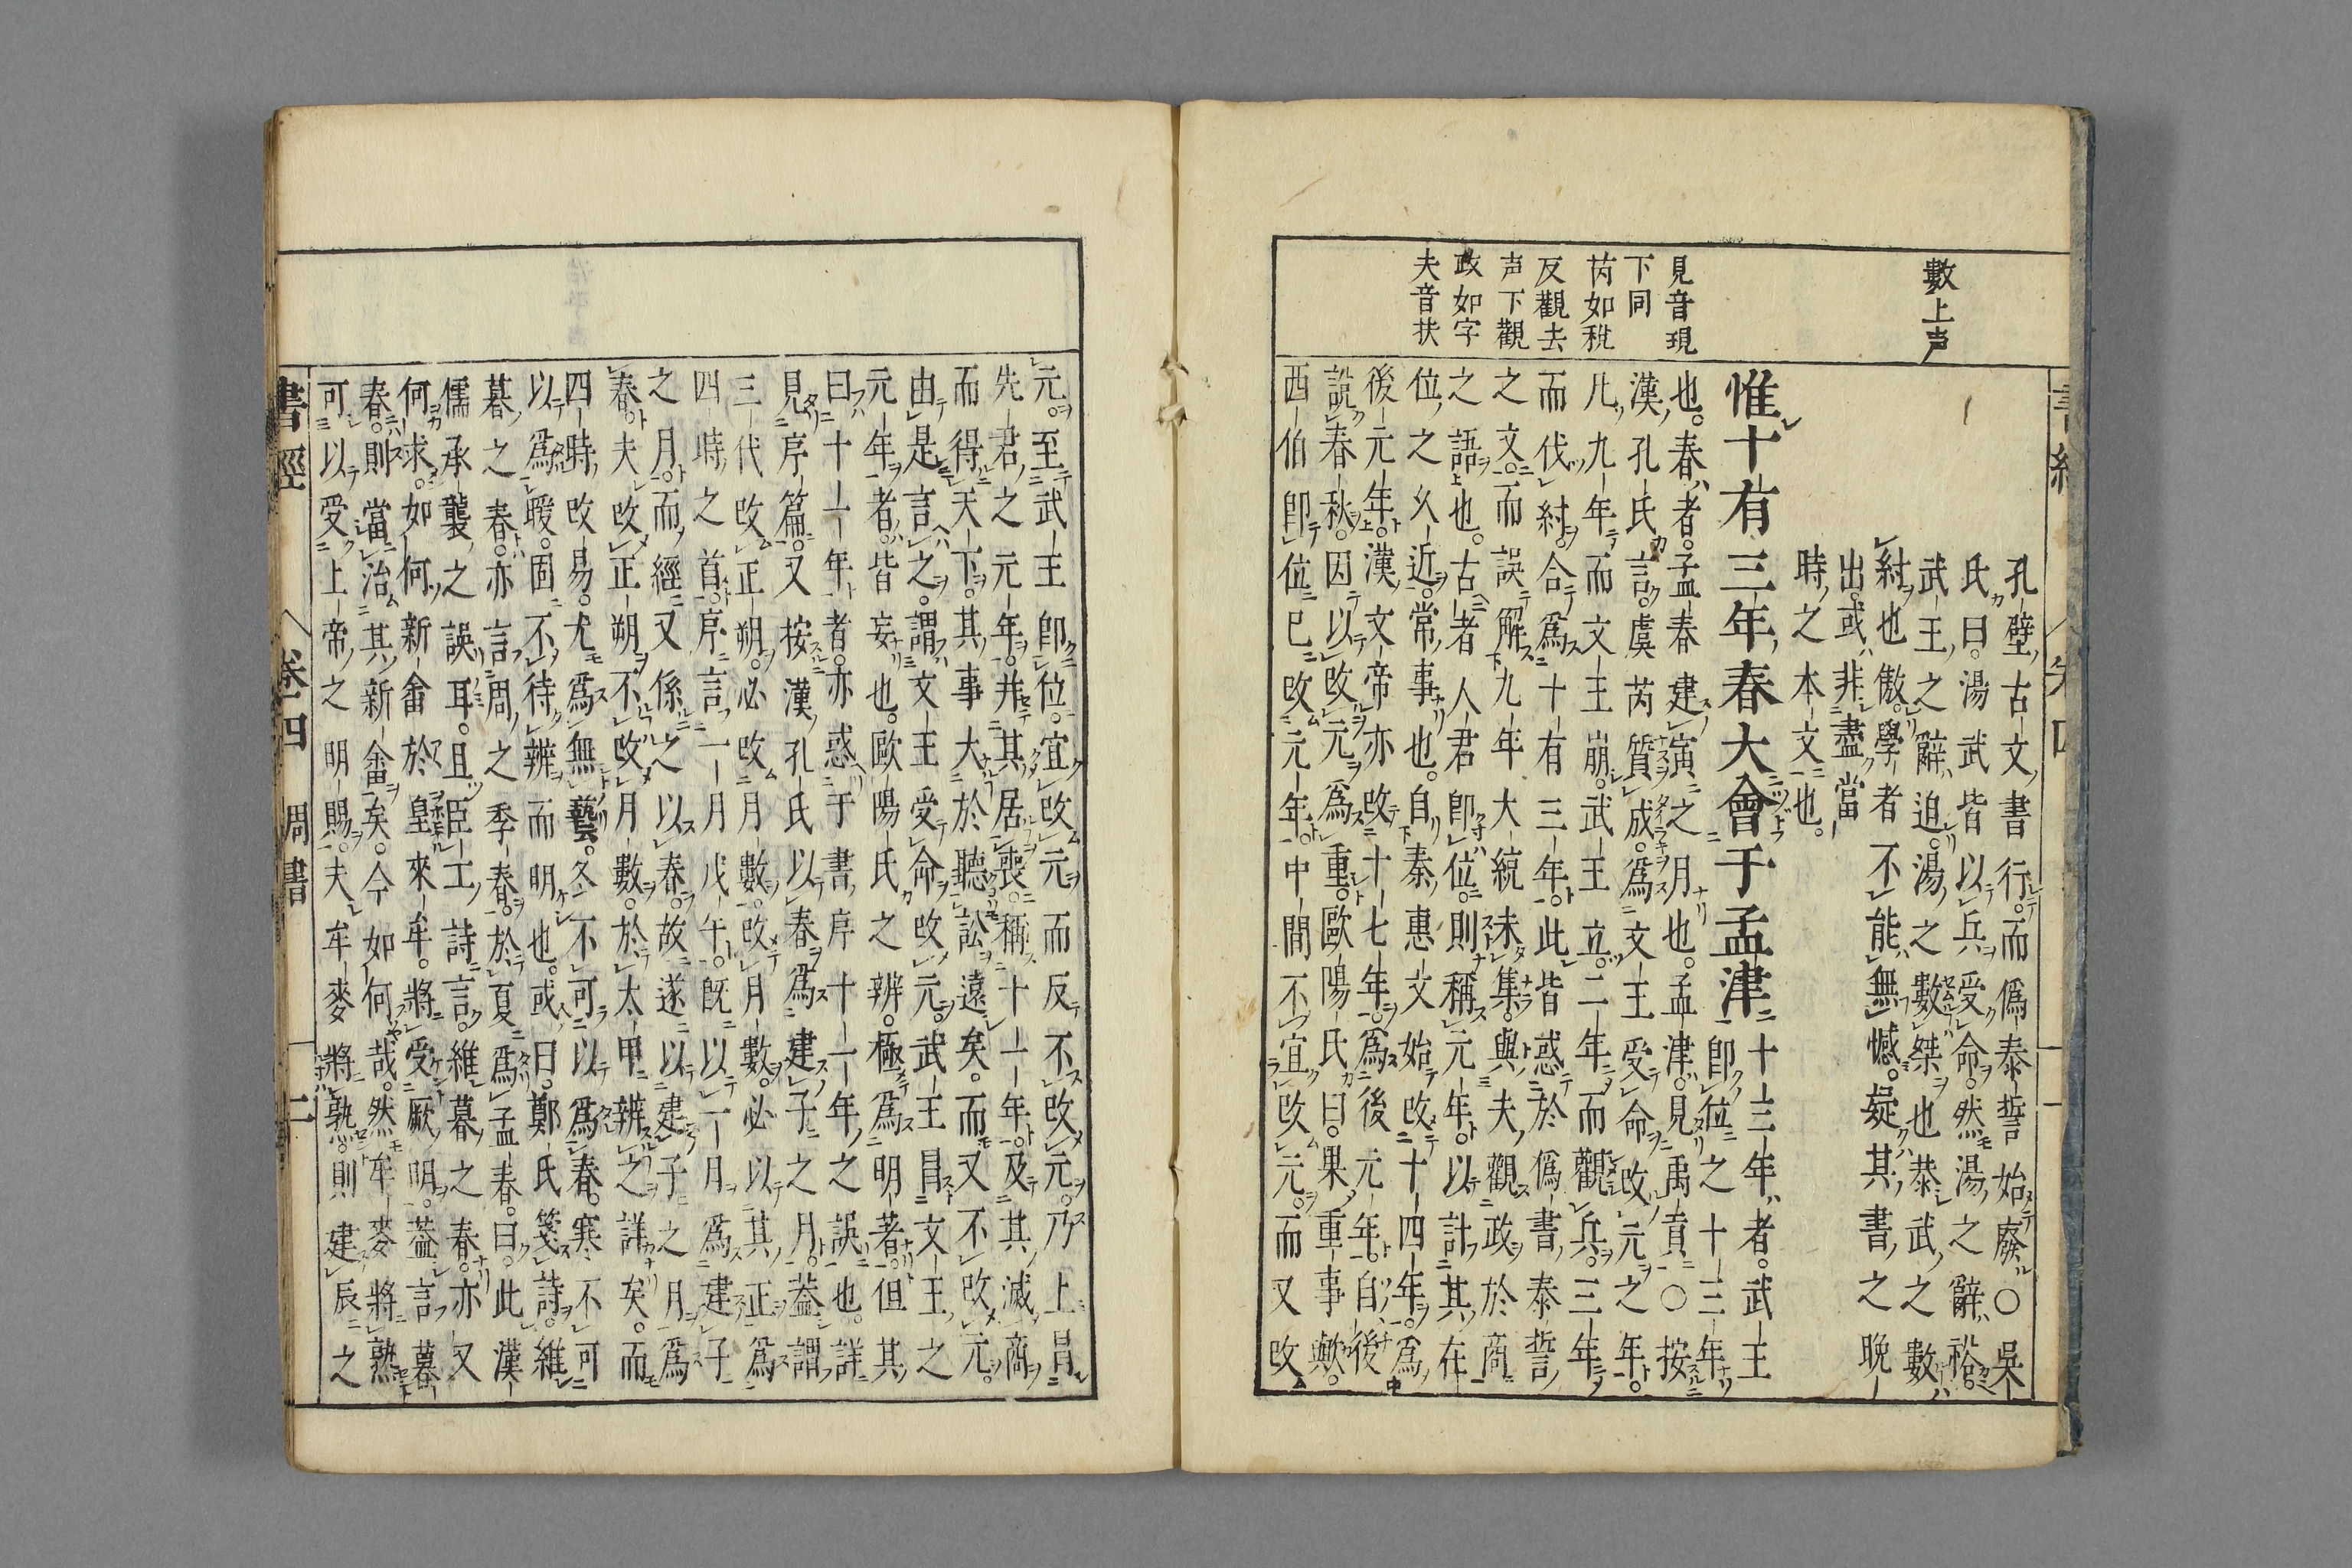 數上声
見音現
下同
芮如稅
反觀去
声下觀
政如字
夫音扶
孔壁古文書行而僞泰誓始廢○吳
氏曰湯武皆以兵受命然湯之辭裕
武王之辭迫湯之數桀也恭武之數
紂也傲學者不能無憾疑其書之晚
出或非盡當
時之本文也
惟十有三年春大會于孟津十三年者武王
卽位之十三年
也春者孟春建寅之月也孟津見禹貢○按
漢孔氏言虞芮質成爲文王受命改元之年
凡九年而文王崩武王立二年而觀兵三年
而伐紂合爲十有三年此皆惑於僞書泰誓
之文而誤解九年大統未集與夫觀政於商
之語也古者人君卽位則稱元年以計其在
位之久近常事也自秦惠文始改十四年爲
後元年漢文帝亦改十七年爲後元年自後
說春秋因以改元爲重歐陽氏曰果重事歟
西伯卽位已改元年中間不宜改元而又改
元至武王卽位宜改元而反不改元乃上冒
先君之元年幷其居喪稱十一年及其滅商
而得天下其事大於聽訟遠矣而又不改元
由是言之謂文王受命改元武王冒文王之
元年者皆妄也歐陽氏之辨極爲明著但其
曰十一年者亦惑于書序十一年之誤也詳
見序篇又按漢孔氏以春爲建子之月蓋謂
三代改正朔必改月數改月數必以其正爲
四時之首序言一月戊午旣以一月爲建子
之月而經又係之以春故遂以建子之月爲
春夫改正朔不改月數於太甲辨之詳矣而
四時改易尤爲無藝冬不可以爲春寒不可
以爲暖固不待辨而明也或曰鄭氏箋詩維
暮之春亦言周之季春於夏爲孟春曰此漢
儒承襲之誤耳且臣工詩言維暮之春亦又
何求如何新畬於皇來牟將受厥明蓋言暮
春則當治其新畬矣今如何哉然牟麥將熟
可以受上帝之明賜夫牟麥將熟則建辰之
書經　卷四　周書　二